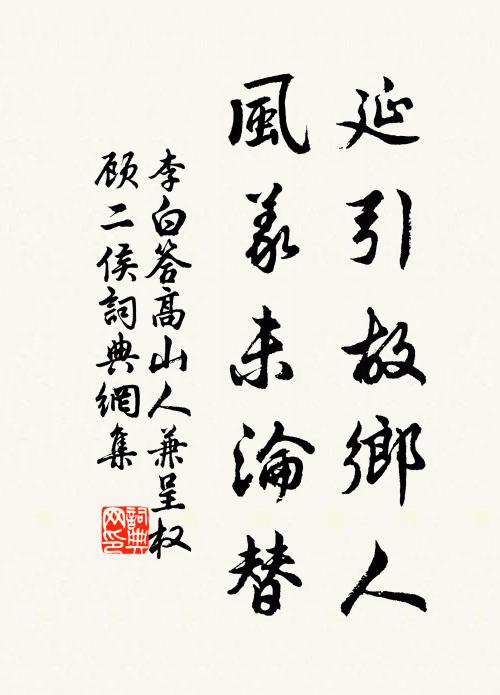 延引故鄉人
風義未淪替
李白答高山人兼呈权
顾二侯詞典網集
詞典网印